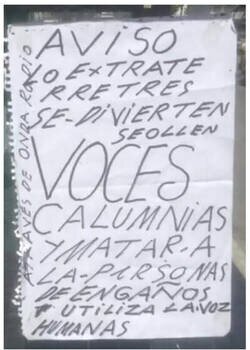 AVISO
LO EXTRATE
RRETRES
SE-DIVIERTEN
SEOLLEN
VOCES
CALUMNIAS
Y MATAR-A
LA-PERSONAS
DE ENGAÑOS
Y UTILIZA LA VOZ
HUMANAS
ATRAVES DE ONDA RODIO